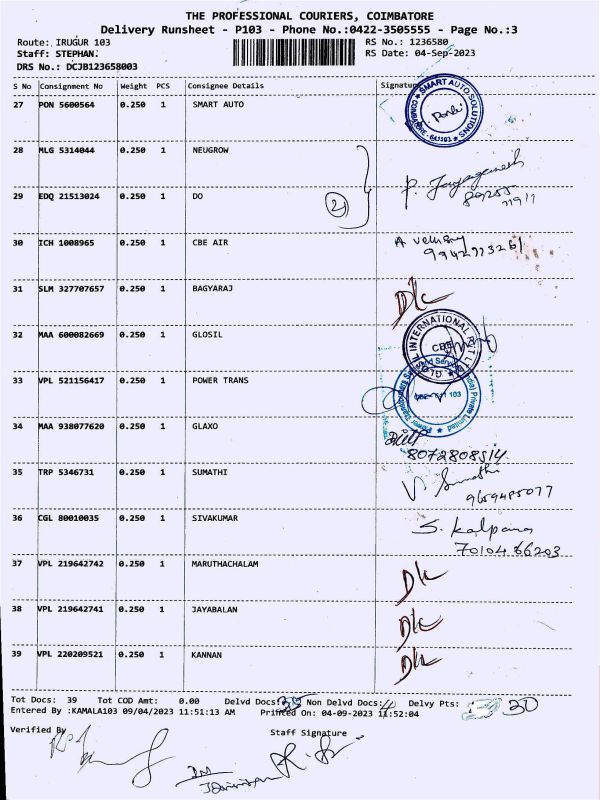 THE PROFESSIONAL COURIERS, COIMBATORE
Delivery Runsheet - P103 - Phone No.:0422-3505555 - Page No.:3
Route: IRUGUR 103 RS No.: 1236580
Staff: STEPHAN. RS Date: 04-Sep-2023
DRS No.: DCJB123658003
S No Consignment No Weight PCS Consignee Details Signature
27 PON 5600564 0.250 1 SMART AUTO
SMART AUTO SOLUTIONS COIMBATORE - 641103
28 MLG 5314044 0.250 1 NEUGROW
29 EDQ 21513024 0.250 1 DO 2
P. Jayaganesh
89255
71911
30 ICH 1008965 0.250 1 CBE AIR
9942773261
31 SLM 327707657 0.250 1 BAGYARAJ D/c
32 MAA 600082669 0.250 1 GLOSIL
GLOSIL INTERNATIONAL PVT LTD CBE
33 VPL 521156417 0.250 1 POWER TRANS
Private Limited
34 MAA 938077620 0.250 1 GLAXO
8072808514
35 TRP 5346731 0.250 1 SUMATHI V. Sumathi
9659485077
36 CGL 80010035 0.250 1 SIVAKUMAR S. Kalpana
7010466203
37 VPL 219642742 0.250 1 MARUTHACHALAM D/c
38 VPL 219642741 0.250 1 JAYABALAN D/c
39 VPL 220209521 0.250 1 KANNAN D/c
Tot Docs: 39 Tot COD Amt: 0.00 Delvd Docs: 35 Non Delvd Docs: 4 Delvy Pts: 30
Entered By :KAMALA103 09/04/2023 11:51:13 AM Printed On: 04-09-2023 11:52:04
Verified By Staff Signature